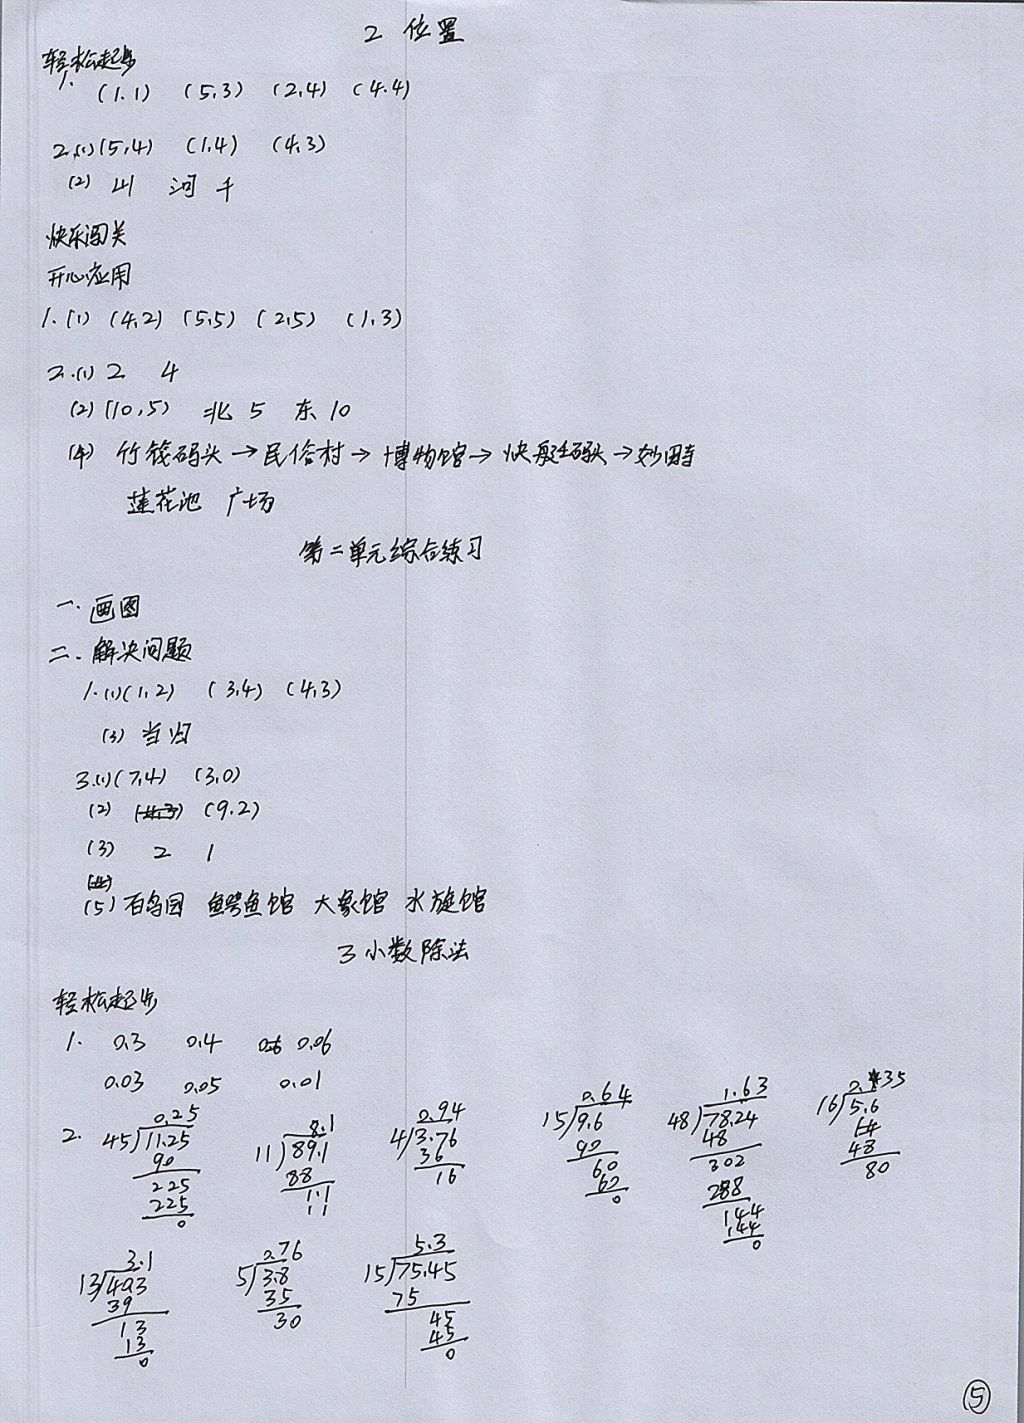 2 位置
轻松起步
1.
(1.1) (5,3) (2,4) (4.4)
2.(1)(5,4) (1,4) (4,3)
(2) 山 河 千
快乐闯关
开心应用
1.(1) (4,2) (5,5) (2,5) (1,3)
2.(1) 2 4
(2)(10,5) 北 5 东 10
(4) 竹筏码头→民俗村→博物馆→快艇码头→妙田寺
莲花池 广场
第二单元综合练习
一.画图
二.解决问题
1.(1)(1,2) (3,4) (4,3)
(3) 当归
3.(1)(7,4) (3,0)
(2) (9.2)
(3) 2 1
(5) 百鸟园 鳄鱼馆 大象馆 水族馆
3 小数除法
轻松起步
1. 0.3 0.4 0.6 0.06
0.03 0.05 0.01
2.
0.25
45 11.25
90
225
225
0
8.1
11 89.1
88
1.1
1 1
0.94
4 3.76
36
16
0.64
15 9.6
90
60
60
0
1.63
48 78.24
48
302
288
144
144
0
0.35
16 5.6
48
80
3.1
13 40.3
39
13
13
0
0.76
5 3.8
35
30
5.3
15 75.45
75
45
45
0
5